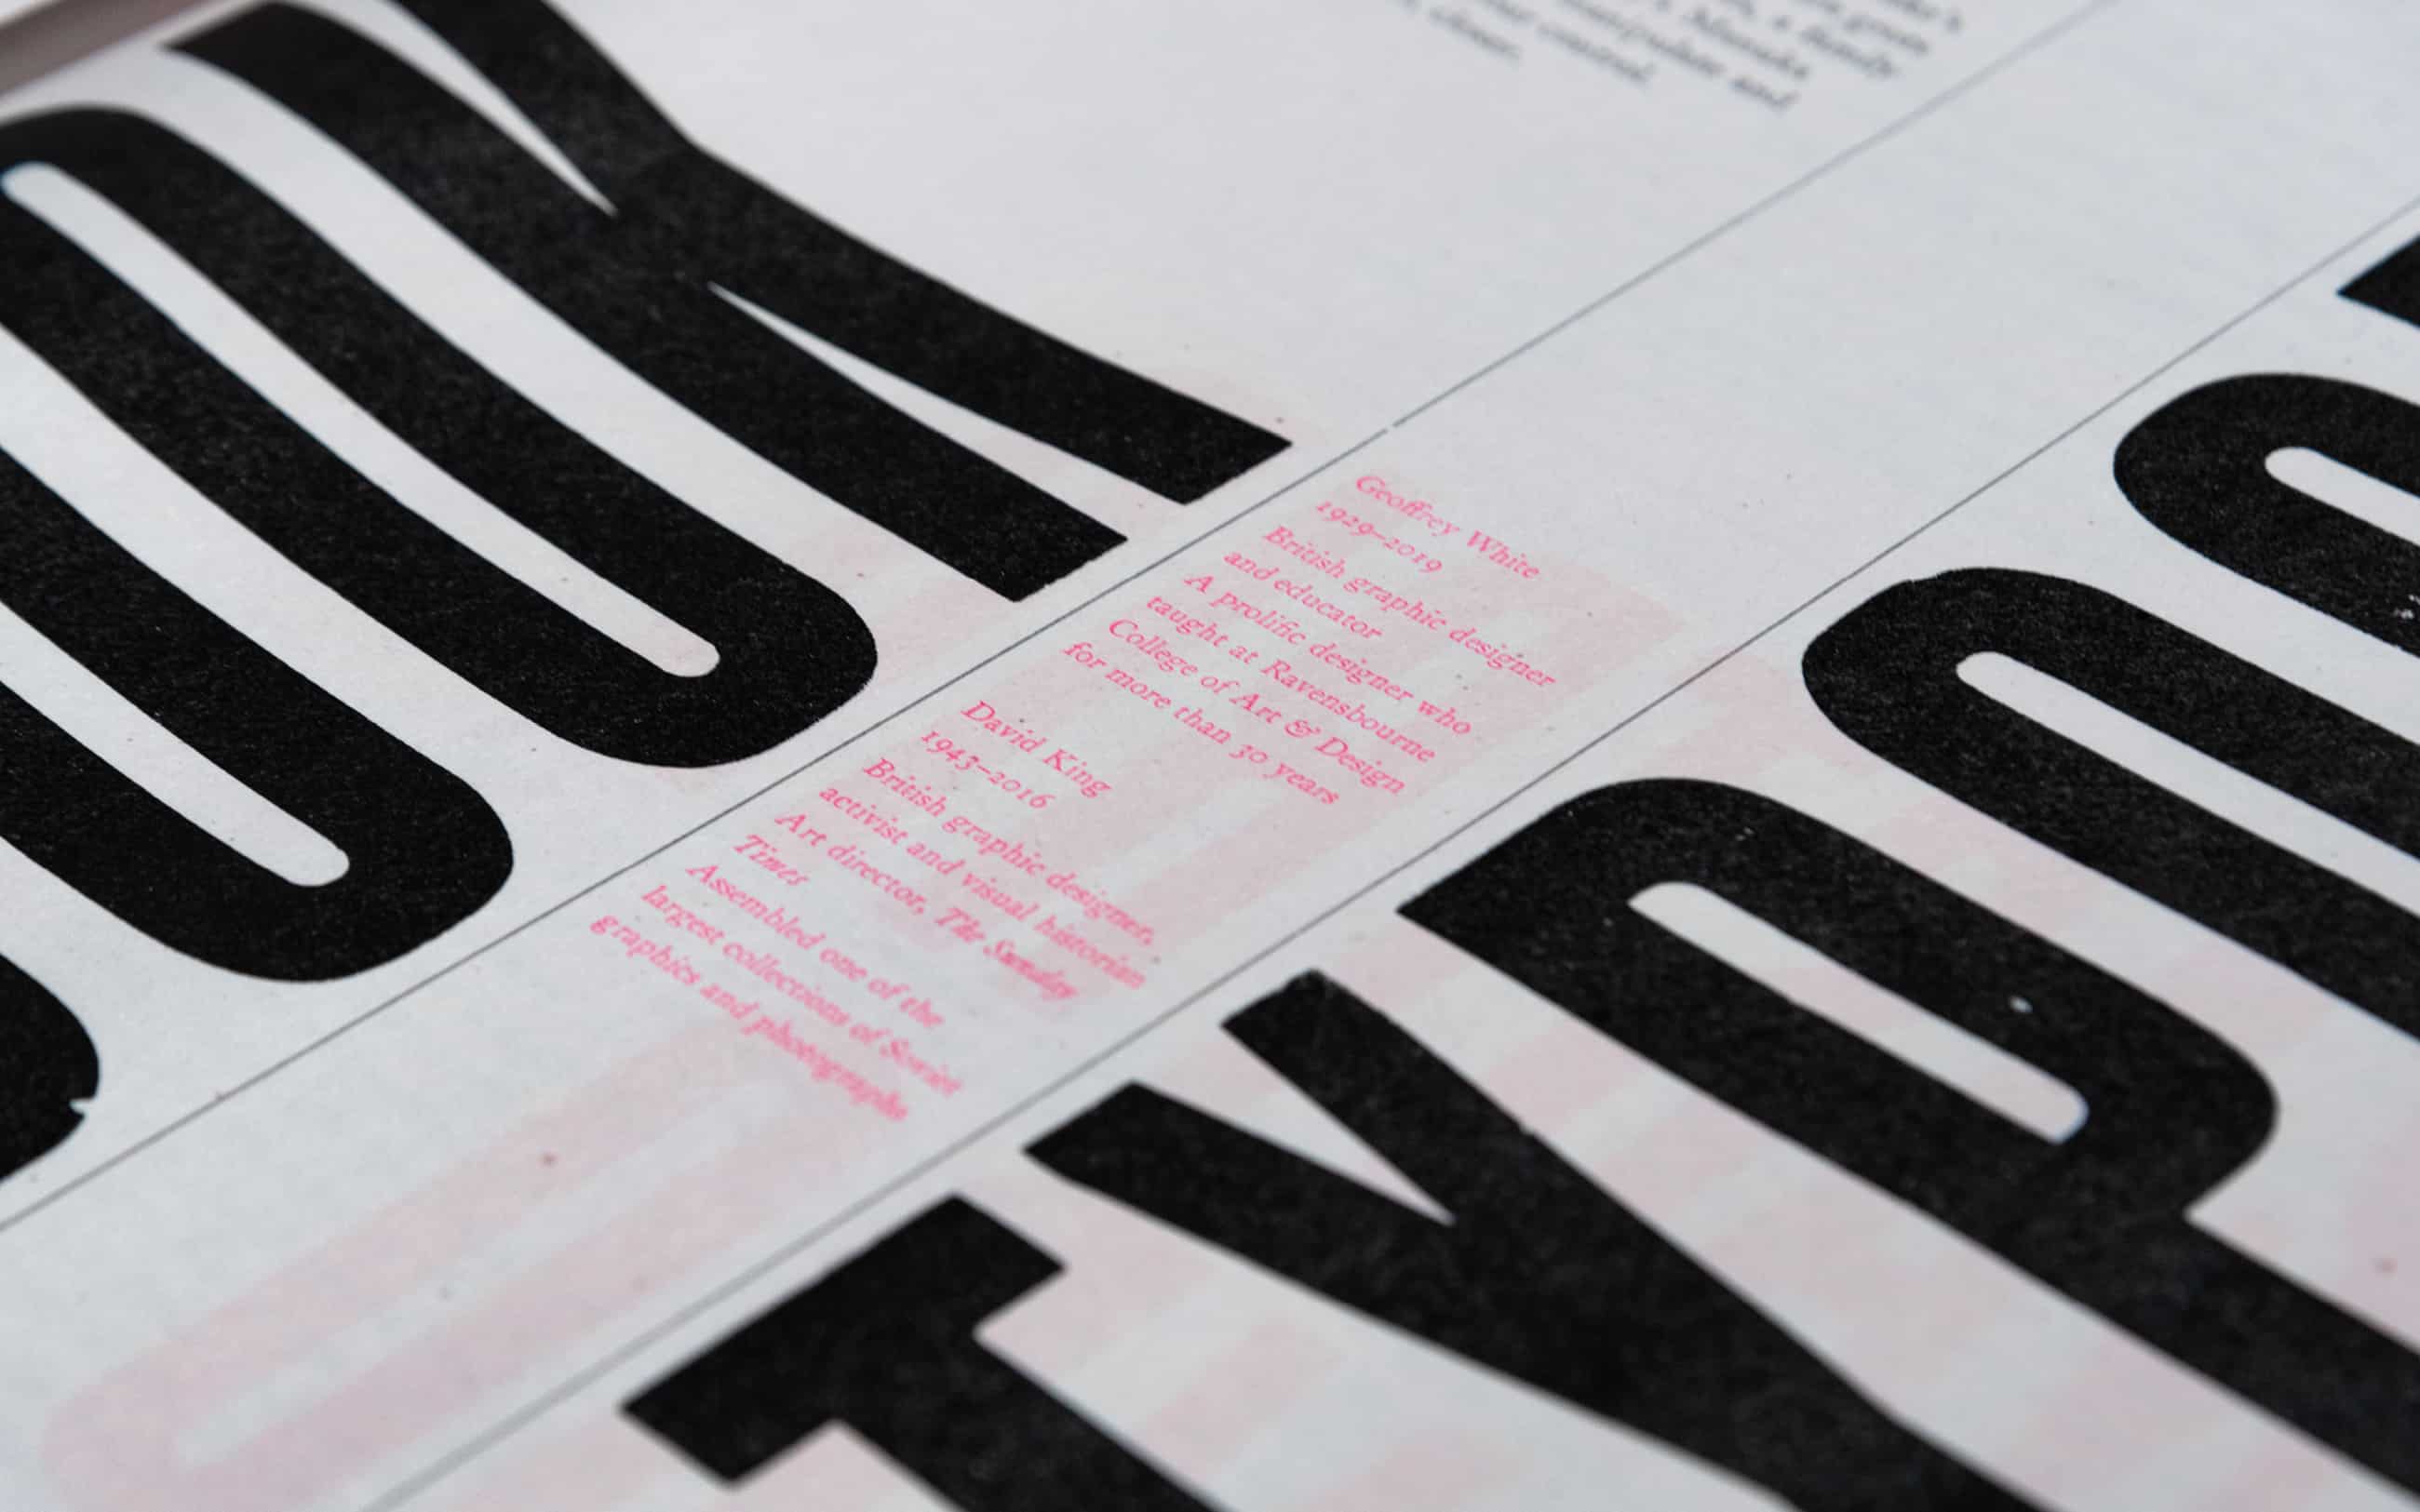 OOK
a family
manipulate and
control.
Geoffrey White
1929–2019
British graphic designer
and educator
A prolific designer who
taught at Ravensbourne
College of Art & Design
for more than 30 years
David King
1943–2016
British graphic designer,
activist and visual historian
Art director, The Sunday
Times
Assembled one of the
largest collections of Soviet
graphics and photographs
TYPO